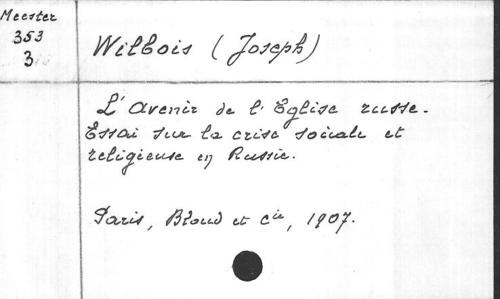 Meester
353
3
Wilbois (Joseph)
L'avenir de l'Eglise russe.
Essai sur la crise sociale et
religieuse en Russie.
Paris, Bloud et Cie, 1907.